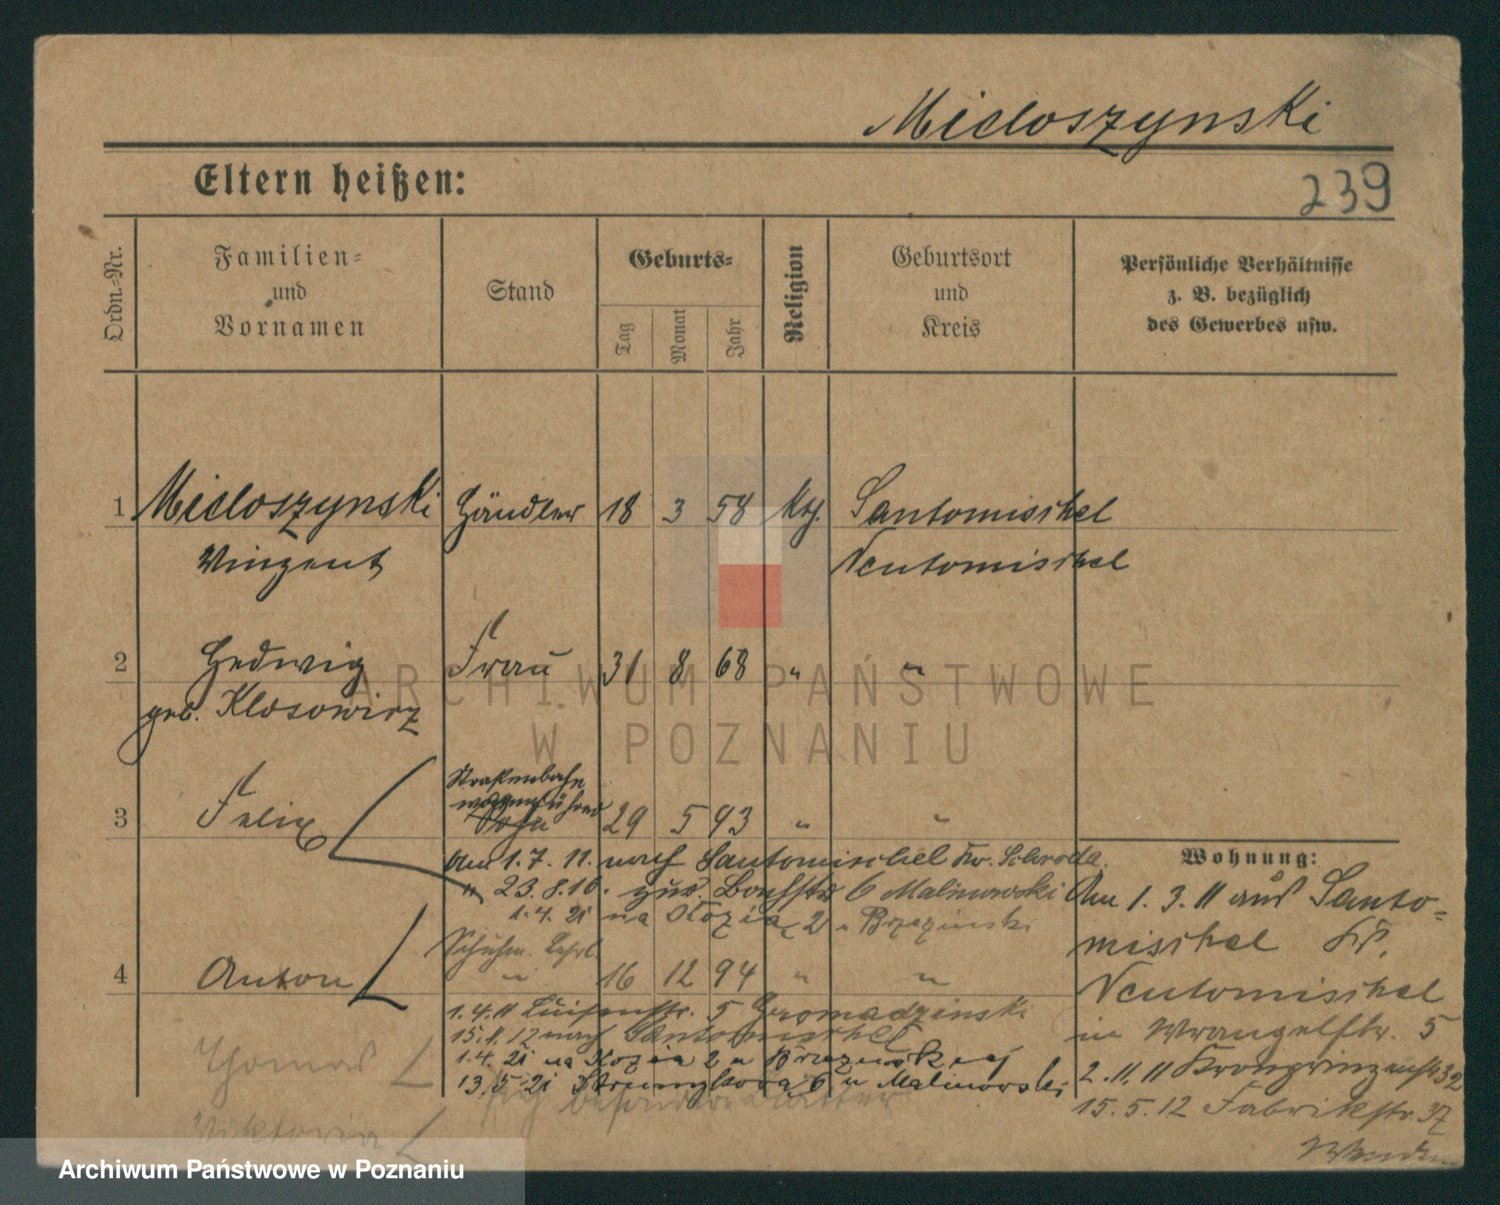 Midoszynski
Eltern heißen:
239
Ordn.-Nr.
Familien-
und
Vornamen
Stand
Geburts-
Tag
Monat
Jahr
Religion
Geburtsort
und
Kreis
Persönliche Verhältnisse
z. B. bezüglich
des Gewerbes usw.
1 Midoszynski Händler 18 3 58 kth. Santomischel
Vinzent Neutomischel
2 Hedwig Frau 31 8 68 " "
geb. Klosowicz
Straßenbahn
wagenführer
3 Felix Sohn 29 5 93 " "
Am 1.7.11. nach Santomischel Kr. Schroda.
" 23.8.16. zus. Bachstr 6 Malinowski
1.4.21 na Kozia 2 u Brzezinski
Schuhm. Lehrl.
4 Anton " 16 12 94 " "
1.4.11 Luisenstr. 5 Gromadzinski
15.11.12 nach Santomischel
1.4.21 na Kozia 2 u Brzezinskiej
13.5.21 Strumykowa 6 u Malinowski
Thomas
Viktoria
Wohnung:
Am 1.3.11 aus Santo=
mischel Kr.
Neutomischel
in Wrangelstr. 5
2.11.11 Kronprinzenstr 32
15.5.12 Fabrikstr. 37
ARCHIWUM PAŃSTWOWE
W POZNANIU
Archiwum Państwowe w Poznaniu